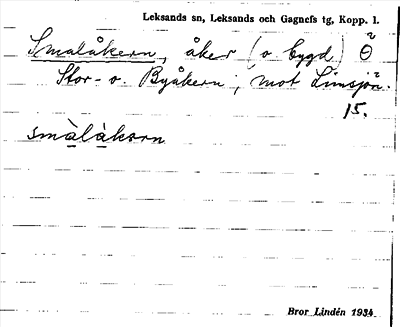 Leksands sn, Leksands och Gagnefs tg, Kopp. l.
Smalåkern, åker (o bygd) Ö
Stor- o. Byåkern, mot Limsjön.
15.
smàlàkərn
Bror Lindén 1934.